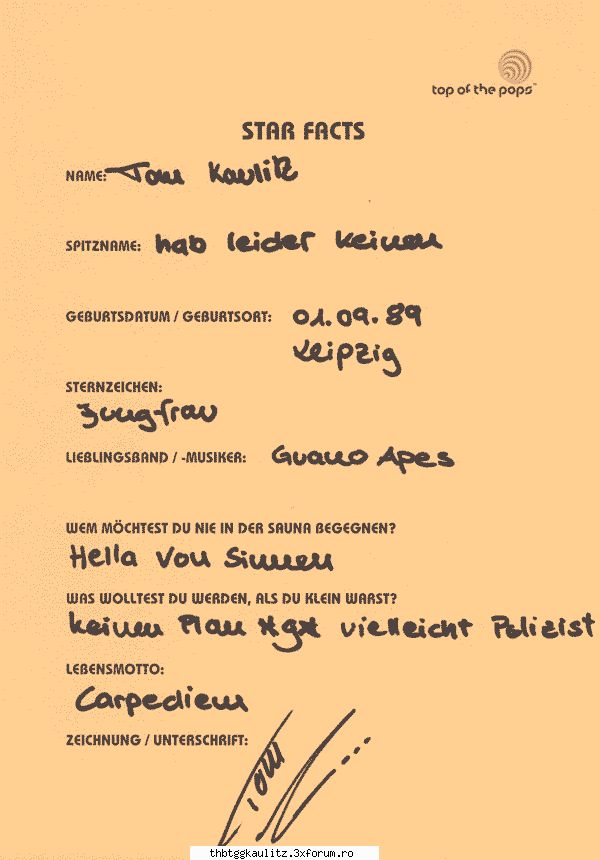 top of the pops™
STAR FACTS
NAME: Tom Kaulitz
SPITZNAME: hab leider keinen
GEBURTSDATUM / GEBURTSORT: 01.09.89
Leipzig
STERNZEICHEN:
Jungfrau
LIEBLINGSBAND / -MUSIKER: Guano Apes
WEM MÖCHTEST DU NIE IN DER SAUNA BEGEGNEN?
Hella Von Sinnen
WAS WOLLTEST DU WERDEN, ALS DU KLEIN WARST?
keinen Plan *g* vielleicht Polizist
LEBENSMOTTO:
Carpediem
ZEICHNUNG / UNTERSCHRIFT:
Tom
thbtggkaulitz.3xforum.ro